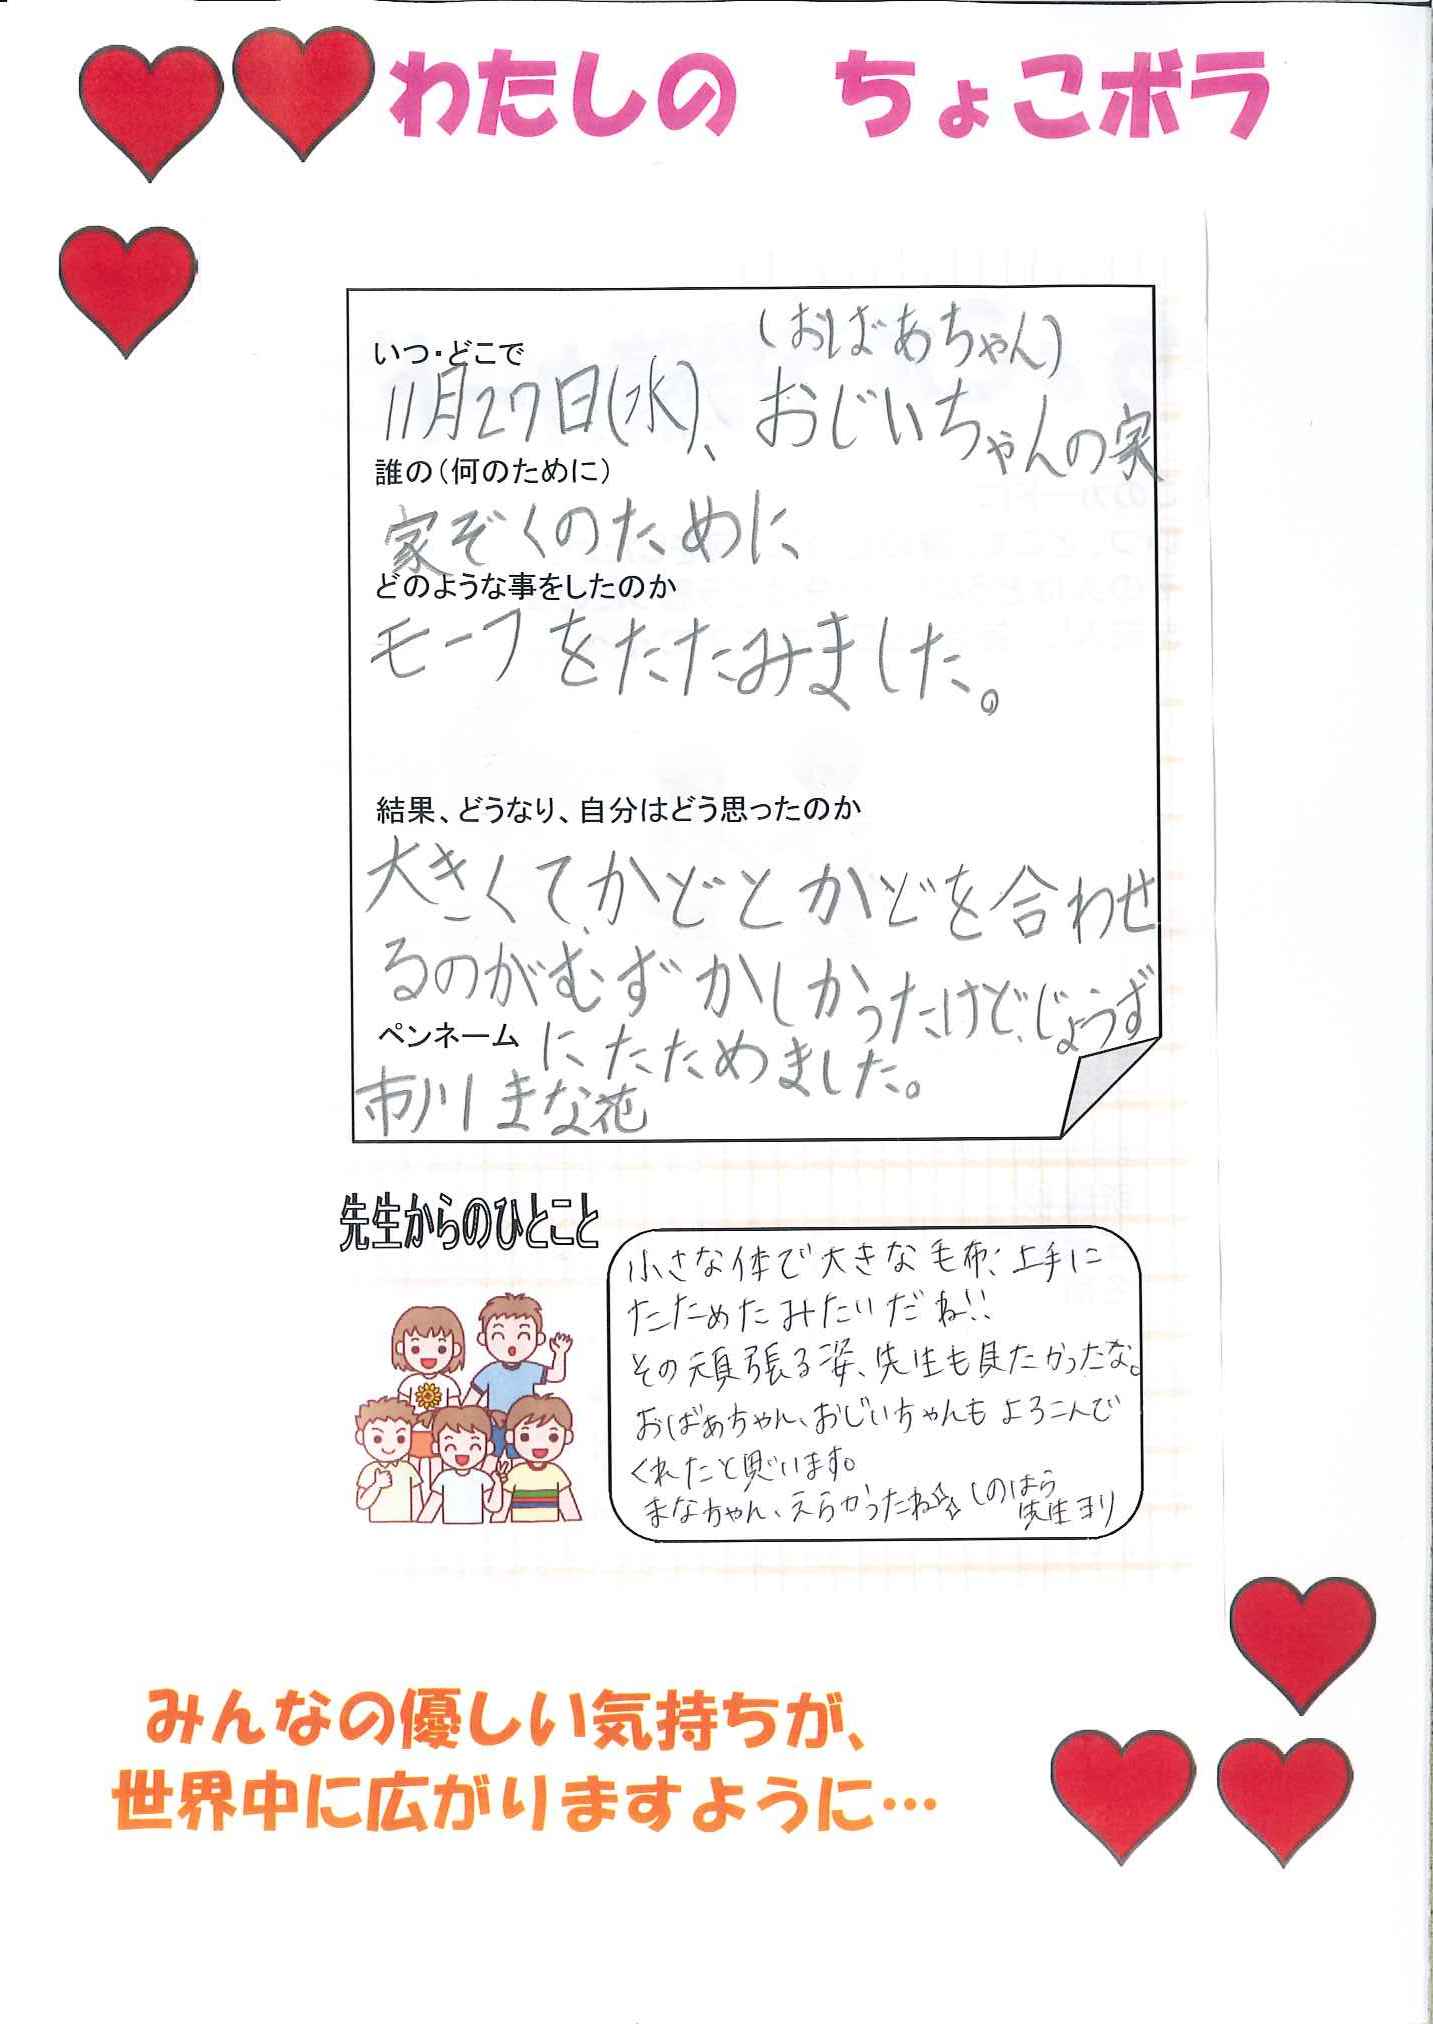 わたしの　ちょこボラ
いつ・どこで
(おばあちゃん)
11月27日(水)、おじいちゃんの家
誰の(何のために)
家ぞくのために
どのような事をしたのか
モーフをたたみました。
結果、どうなり、自分はどう思ったのか
大きくて、かどとかどを合わせ
るのがむずかしかったけど、じょうず
にたためました。
ペンネーム
市川まな花
先生からのひとこと
小さな体で大きな毛布、上手に
たためたみたいだね!!
その頑張る姿、先生も見たかったな。
おばあちゃん、おじいちゃんもよろこんで
くれたと思います。
まなちゃん、えらかったね☆ しのはら
先生ヨリ
みんなの優しい気持ちが、
世界中に広がりますように…